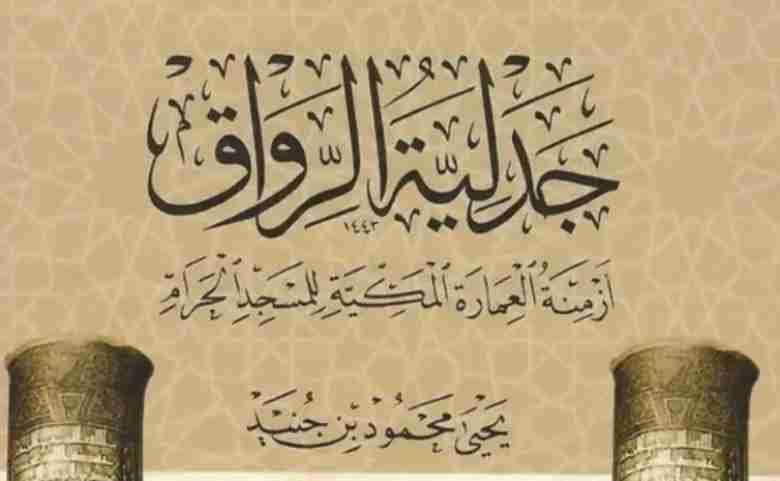 جَدَلِيَّةُ الرِّوَاق
١٤٤٣
أَزْمِنَةُ الْعِمَارَةِ الْمَكِّيَّةِ لِلْمَسْجِدِ الْحَرَامِ
يَحْيَىٰ مَحْمُود بْن جُنَيْد